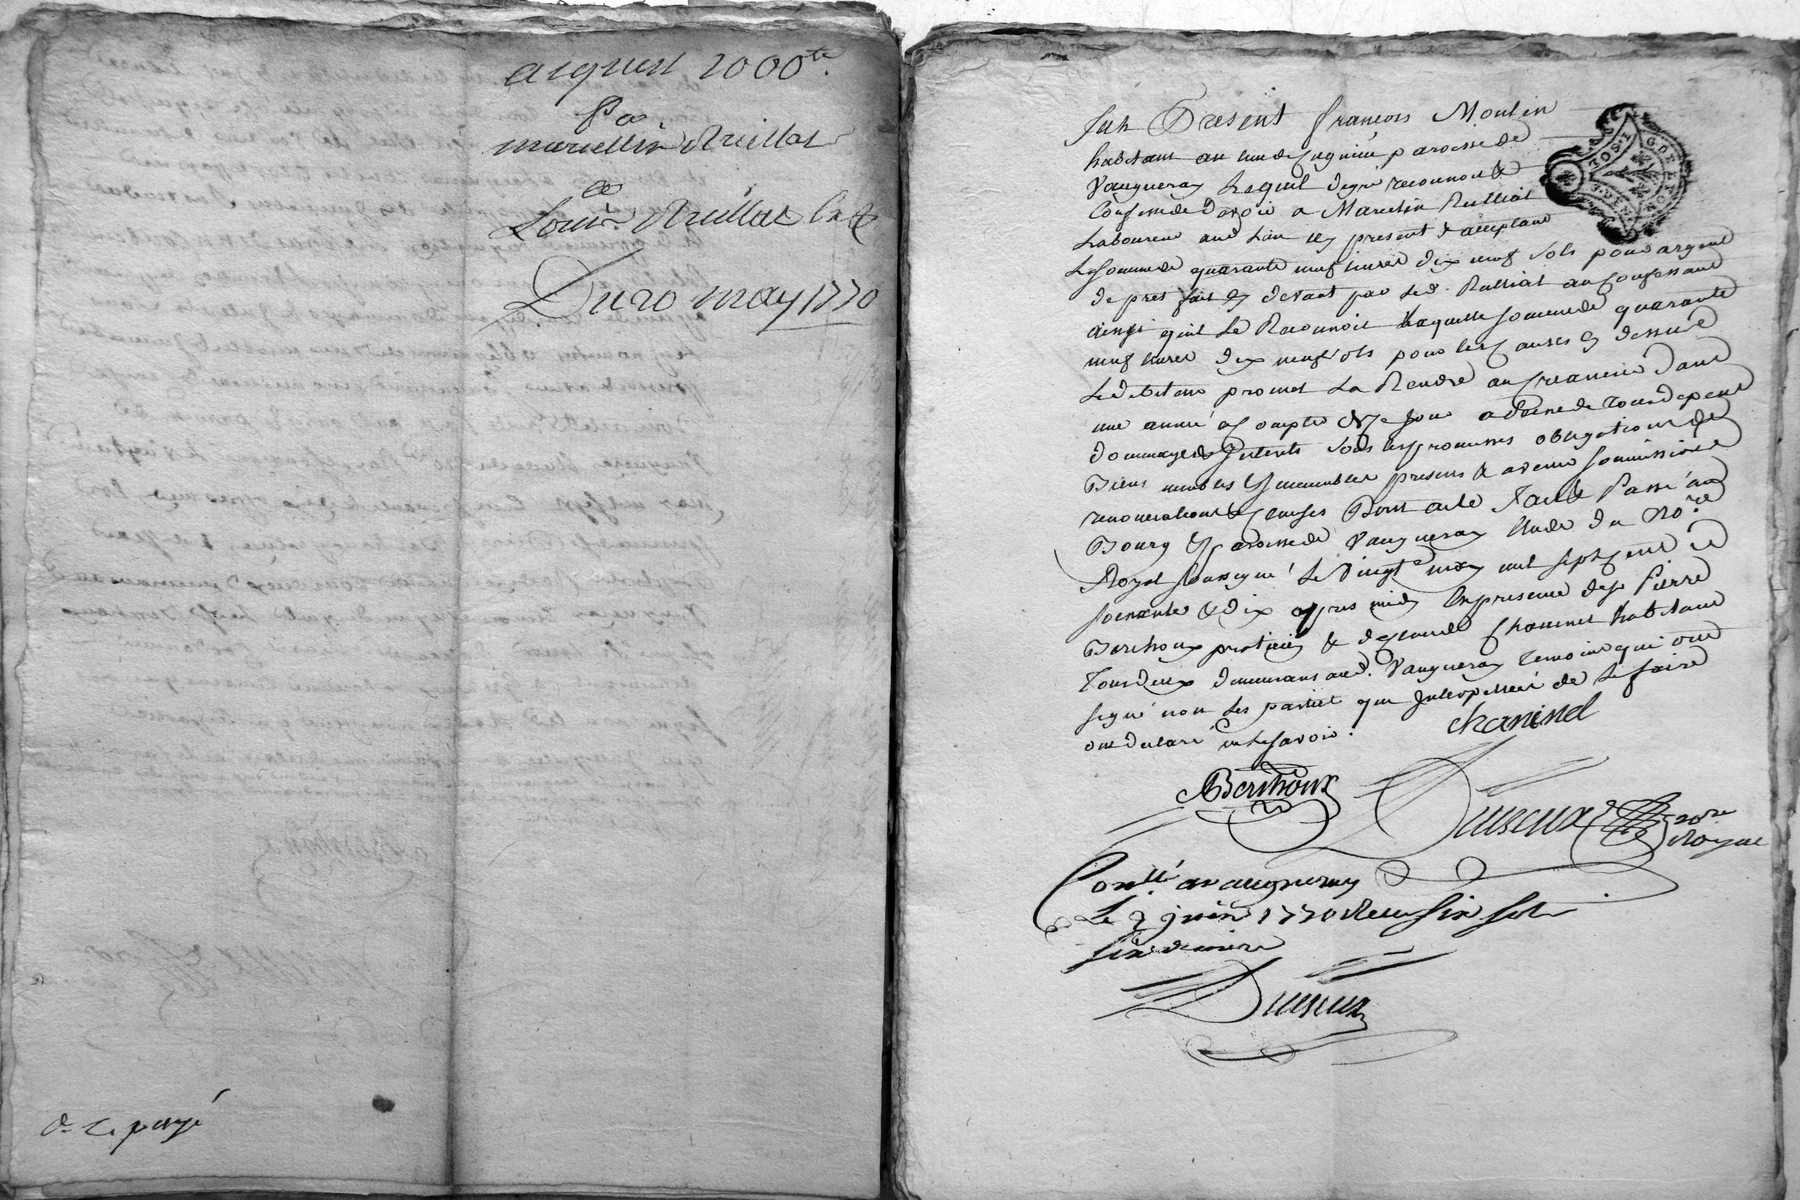 acquest 2000
Pr
marcellin Rulliat
Ce
Louis Rulliat
Du 20 may 1770
payé
fut Present francois Moulin
habitant au lieu de paroisse de
Vaugneray Lequel de gré reconnoit &
Confesse devoir a Marcelin Rulliat
Laboureur aud. Lieu icy present & acceptant
La somme de quarante neuf livres dix neuf sols pour argent
de pret fait cy devant par Led. Rulliat au Confessant
ainsi quil Le Reconnoit Laquelle somme de quarante
neuf livres dix neuf sols pour les causes cy dessus
Le debiteur promet La Rendre au Creancier dans
une année a Compter de ce jour a peine de tous depens
dommages Interets sous les promesses obligations de
Biens meubles & Immeubles presens & avenir soumissions
renonciations & Clauses Dont acte fait & Passé au
Bourg & paroisse de Vaugneray Etude du No.re
Royal soussigné Le Vingt may mil sept cent
soixante & dix apres midy En presence de sr. Pierre
Berthoux praticien & de Chaninel habitant
Tous deux demeurans aud. Vaugneray temoins qui ont
signé non les parties qui Interpellées de Le faire
ont declaré ne Le savoir.
chaninel
Berthoux
no.re
Royal
Con.llé a vaugneray
Le 2 juin 1770 Recu six sols
six deniers